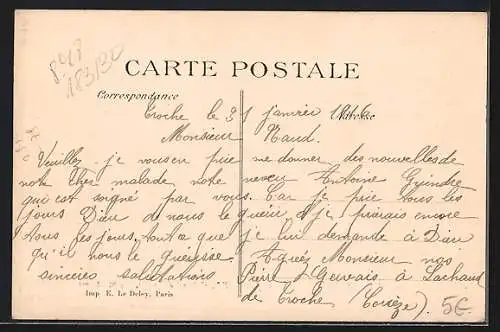 848
183130
CARTE POSTALE
Correspondance
Adresse
Troche le 31 janvier 1916
Monsieur Naud.
Veuillez je vous en prie me donner des nouvelles de
notre cher malade notre neveu Antoine
qui est soigné par vous. Car je prie tous les
jours Dieu de nous le guérir, et je prierais encore
tous les jours, tout ce que je lui demande à Dieu
qu'il nous le guérisse Agréez Monsieur nos
sincères salutations Pierre Gervais à Lachaud
de Troche (Corrèze).
5€
Imp. E. Le Deley, Paris